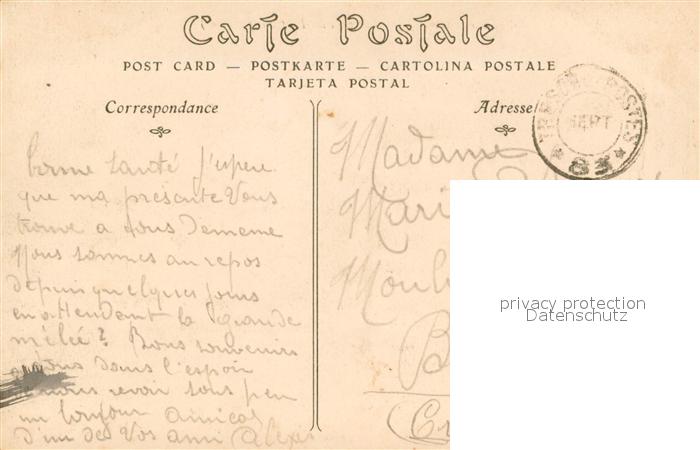 Carte Postale
POST CARD — POSTKARTE — CARTOLINA POSTALE
TARJETA POSTAL
Correspondance
Adresse
TRESOR POSTES
SEPT
* 83 *
bonne santé J'espere
que ma présante Vous
trouve a tous De meme
Nous sommes au repos
depuis quelques jours
en attendant la grande
mélée? Bons souvenirs
dans l'espoir
revoir sous peu
un bonjour amical
d'un de Vos ami Alexis
Madame
Mari
Moul
B
(Cr
privacy protection
Datenschutz